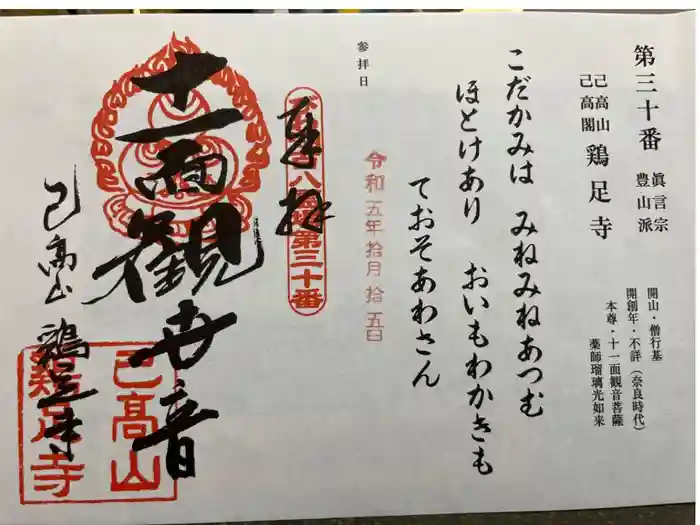 第三十番
眞言宗
豊山派
己高山
己高閣
鶏足寺
開山・僧行基
開創年・不詳(奈良時代)
本尊・十一面観音菩薩
薬師瑠璃光如来
こだかみは みねみねあつむ
ほとけあり おいもわかきも
ておそあわさん
参拝日
令和五年拾月拾五日
奉拝
第三十番
十一面観世音
己高山 鶏足寺
己高山
鶏足寺